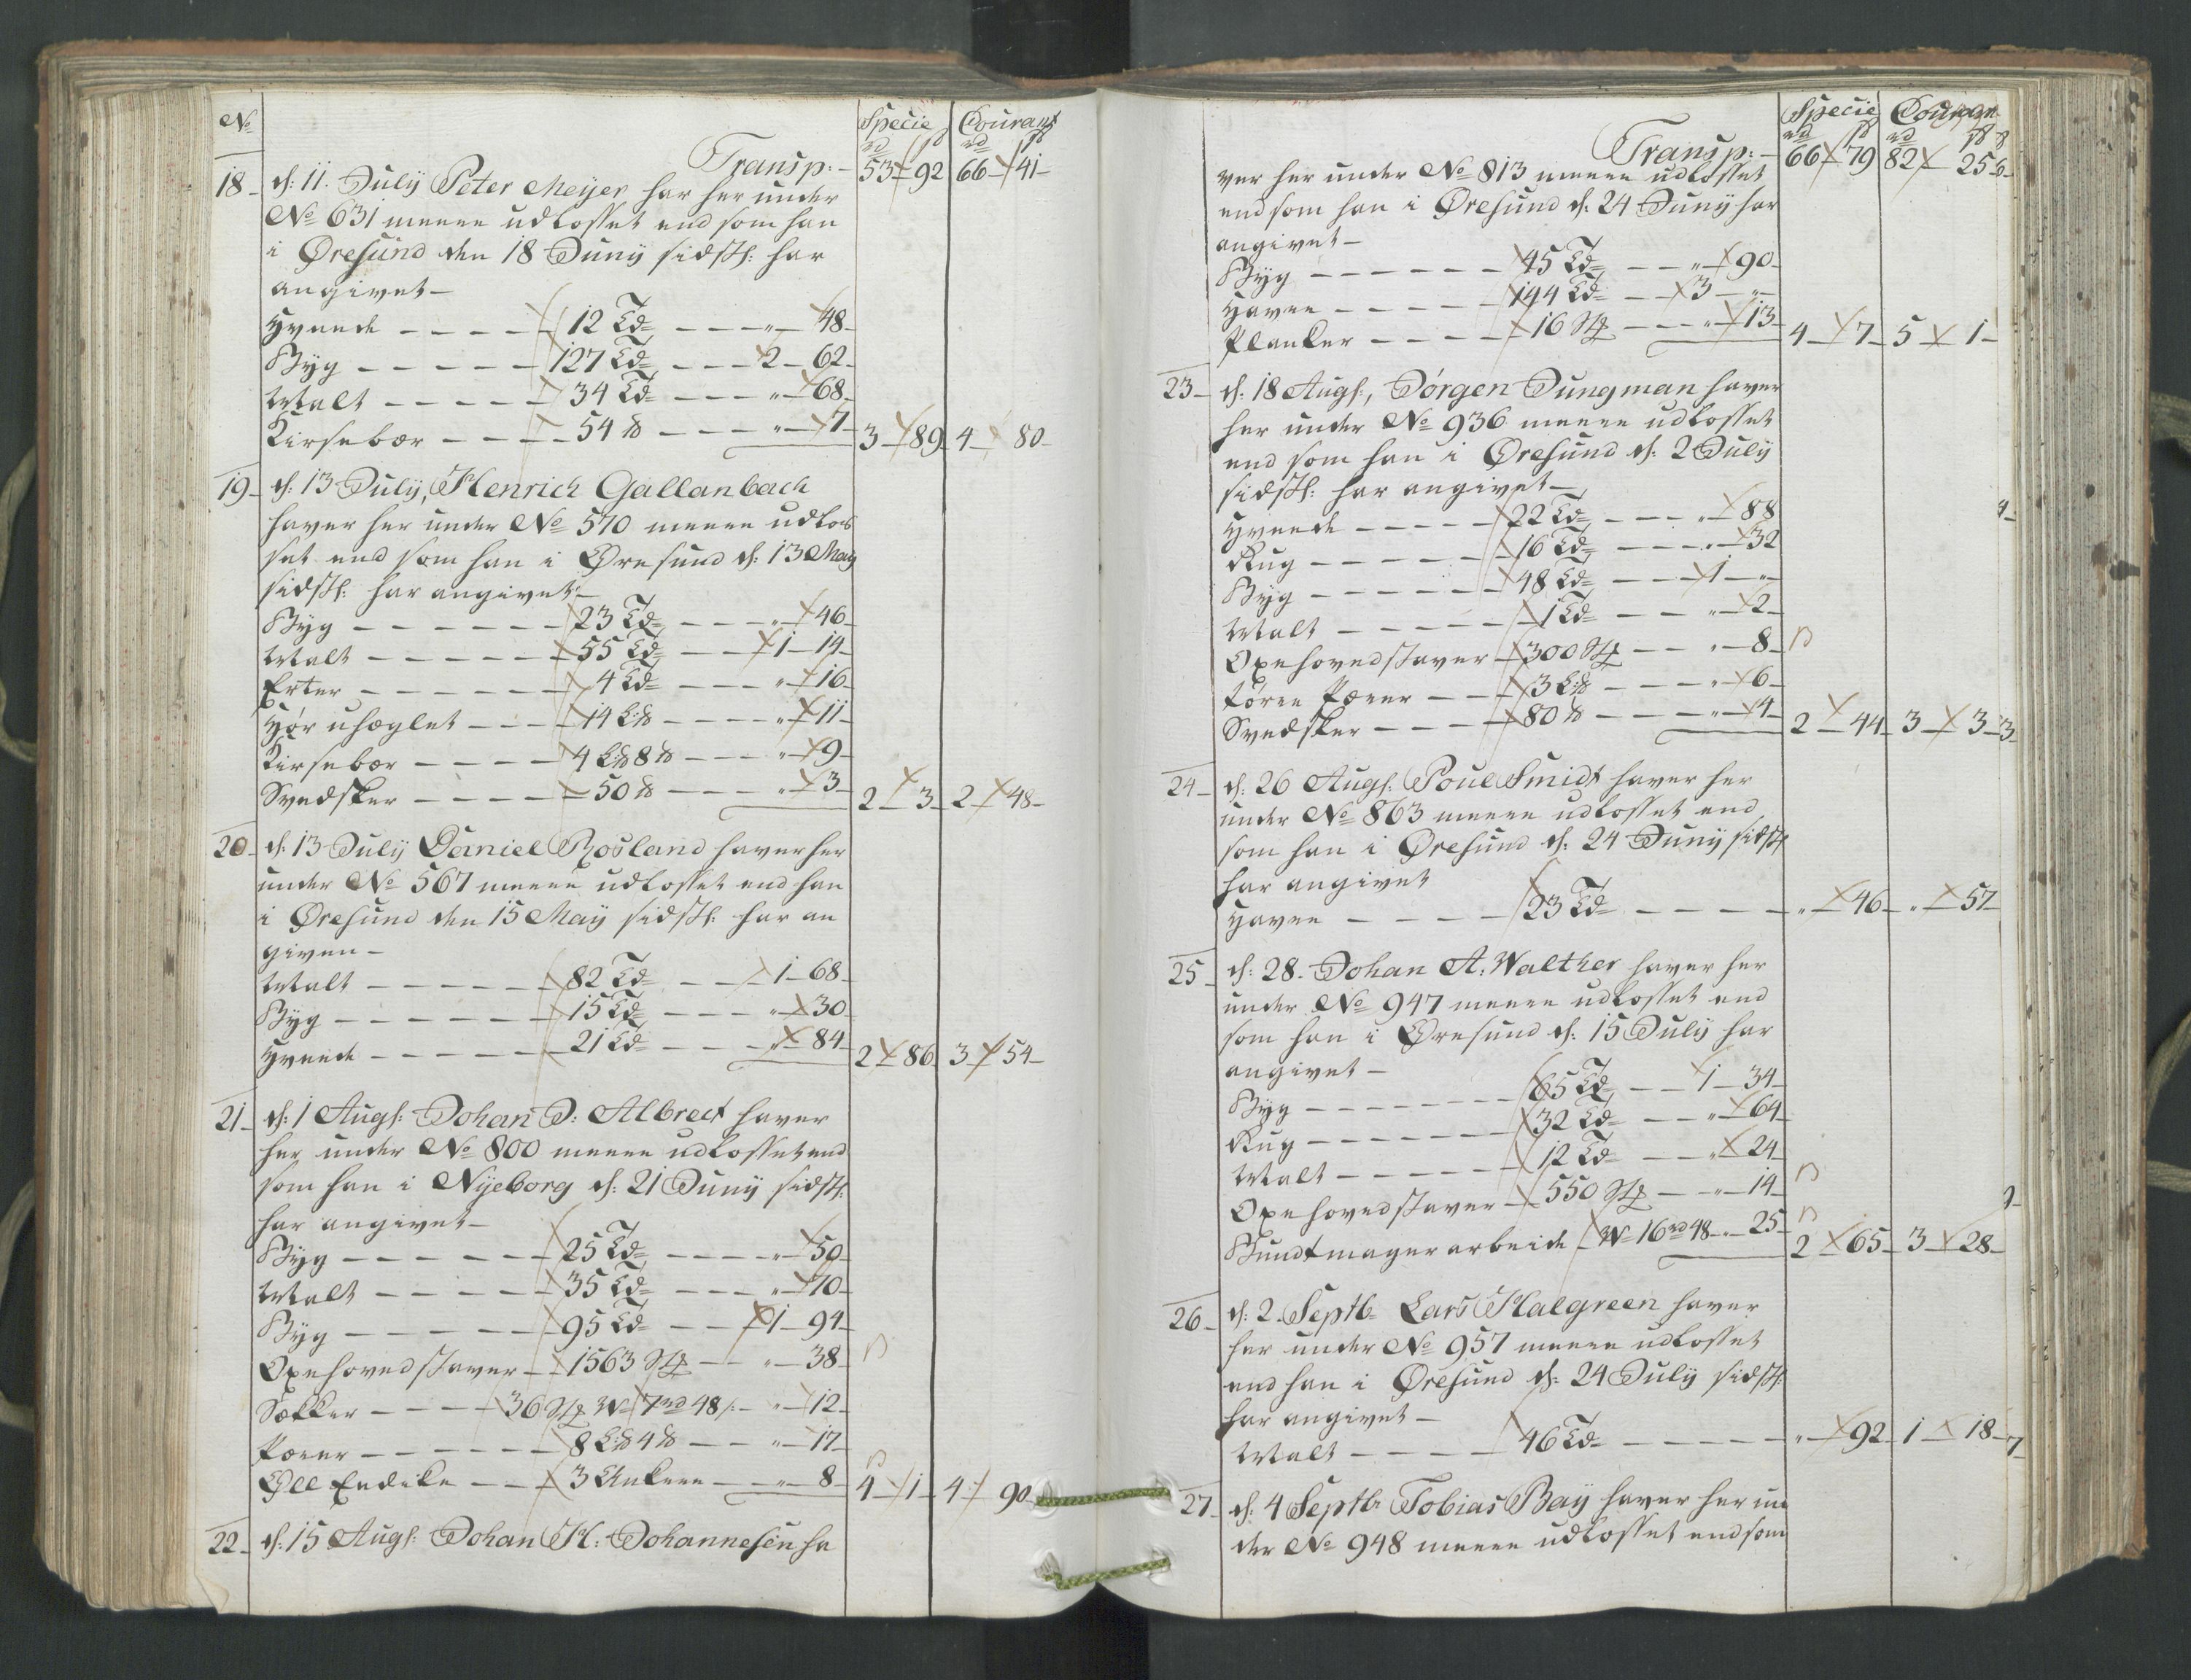 No
Specie Courant
rd ß rd ß
Transp: - 53 - 92 66 - 41 -
18 - d: 11. July Peter Meyer har her under
No 631 meere udlosset end som han
i Øresund den 18 Juny sidstl: har
angivet -
Hvede - - - - 12 Td - - - " - 48 -
Byg - - - - - 127 Td - - - 2 - 62 -
Malt - - - - - 34 Td - - - " - 68 -
Kirsebær - - - - 54 ℔ - - - - " - 7 - 3 - 89 4 - 80 -
19 - d: 13 July, Henrich Gallanbach
haver her under No 570 meere udlos
set end som han i Øresund d: 13 May
sidstl: har angivet: -
Byg - - - - - - 23 Td - - - - " - 46 -
Malt - - - - - - 55 Td - - - 1 - 14 -
Erter - - - - - - 4 Td - - - - " - 16 -
Hør uheglet - - - 14 L℔ - - - - " - 11 -
Kirsebær - - - - 4 L℔ 8 ℔ - - - " - 9 -
Svedsker - - - - 50 ℔ - - - - " - 3 - 2 - 3 - 2 - 48 -
20 - d: 13 July Daniel Rosland haver her
under No 567 meere udlosset end han
i Øresund den 15 May sidstl: har an
given -
Malt - - - - - - 82 Td - - - 1 - 68 -
Byg - - - - - - 15 Td - - - - " - 30 -
Hvede - - - - - - 21 Td - - - - " - 84 - 2 - 86 3 - 54 -
21 - d: 1 Augs: Johan D: Albrect haver
her under No 800 meere udlosset end
som han i Nyeborg d: 21 Juny sidstl:
har angivet -
Byg - - - - - - 25 Td - - - - " - 50 -
Malt - - - - - 35 Td - - - - " - 70 -
Byg - - - - - - 95 Td - - - 1 - 94 -
Oxehovedstaver - - 1563 Stk - - " - 38 -
Sækker - - - 36 Stk W 7 rd 48 ß - " - 12 -
Pærer - - - - - - 8 L℔ 4 ℔ - - - " - 17 -
Øll Eedike - - - 3 Ankere - - " - 8 - 4 - 1 - 4 - 90 -
22 - d: 15 Augs: Johan H: Johannesen ha
Specie Courant
rd ß rd ß
Transp: - 66 - 79 82 - 25 6 -
ver her under No 813 meere udlosset
end som han i Øresund d: 24 Juny har
angivet -
Byg - - - - - - 45 Td - - - " - 90 -
Havre - - - - - 144 Td - - 3 - " -
Planker - - - - - 16 Stk - - - " - 13 - 4 - 7 - 5 - 1 -
23 - d: 18 Augs:, Jørgen Jungman haver
her under No 936 meere udlosset
end som han i Øresund d: 2 July
sidstl: har angivet -
Hvede - - - - - 22 Td - - - - " - 88
Rug - - - - - - 16 Td - - - - " - 32
Byg - - - - - - 48 Td - - - 1 - " -
Malt - - - - - - 1 Td - - - " - 2 -
Oxehovedstaver - 300 Stk - - " - 8 -
tørre Pærer - - - 3 L℔ - - - - " - 6 -
Svedsker - - - - 80 ℔ - - - - " - 4 - 2 - 44 - 3 - 3 - 3 -
24 - d: 26 Augs: Poul Smidt haver her
under No 863 meere udlosset end
som han i Øresund d: 24 Juny sidstl
har angivet
Havre - - - - - 23 Td - - - - - " - 46 - " - 57 -
25 - d: 28 - Johan A: Walther haver her
under No 947 meere udlosset end
som han i Øresund d: 15 July har
angivet -
Byg - - - - - - - 65 Td - - 1 - 34 -
Rug - - - - - - - 32 Td - - - " - 64 -
Malt - - - - - - 12 Td - - - " - 24 -
Oxehovedstaver - 550 Stk - - " - 14 -
Bundtmagerarbeide - W 16 rd 48 - " - 25 - 2 - 65 - 3 - 28 -
26 - d: 2 - Septb Lars Halgreen haver
her under No 957 meere udlosset
end han i Øresund d: 24 July sidstl:
har angivet -
Malt - - - - - 46 Td - - - - - " - 92 - 1 - 18 - 7 -
27 - d: 4 Septbr Tobias Bay haver her un
der No 948 meere udlosset end som